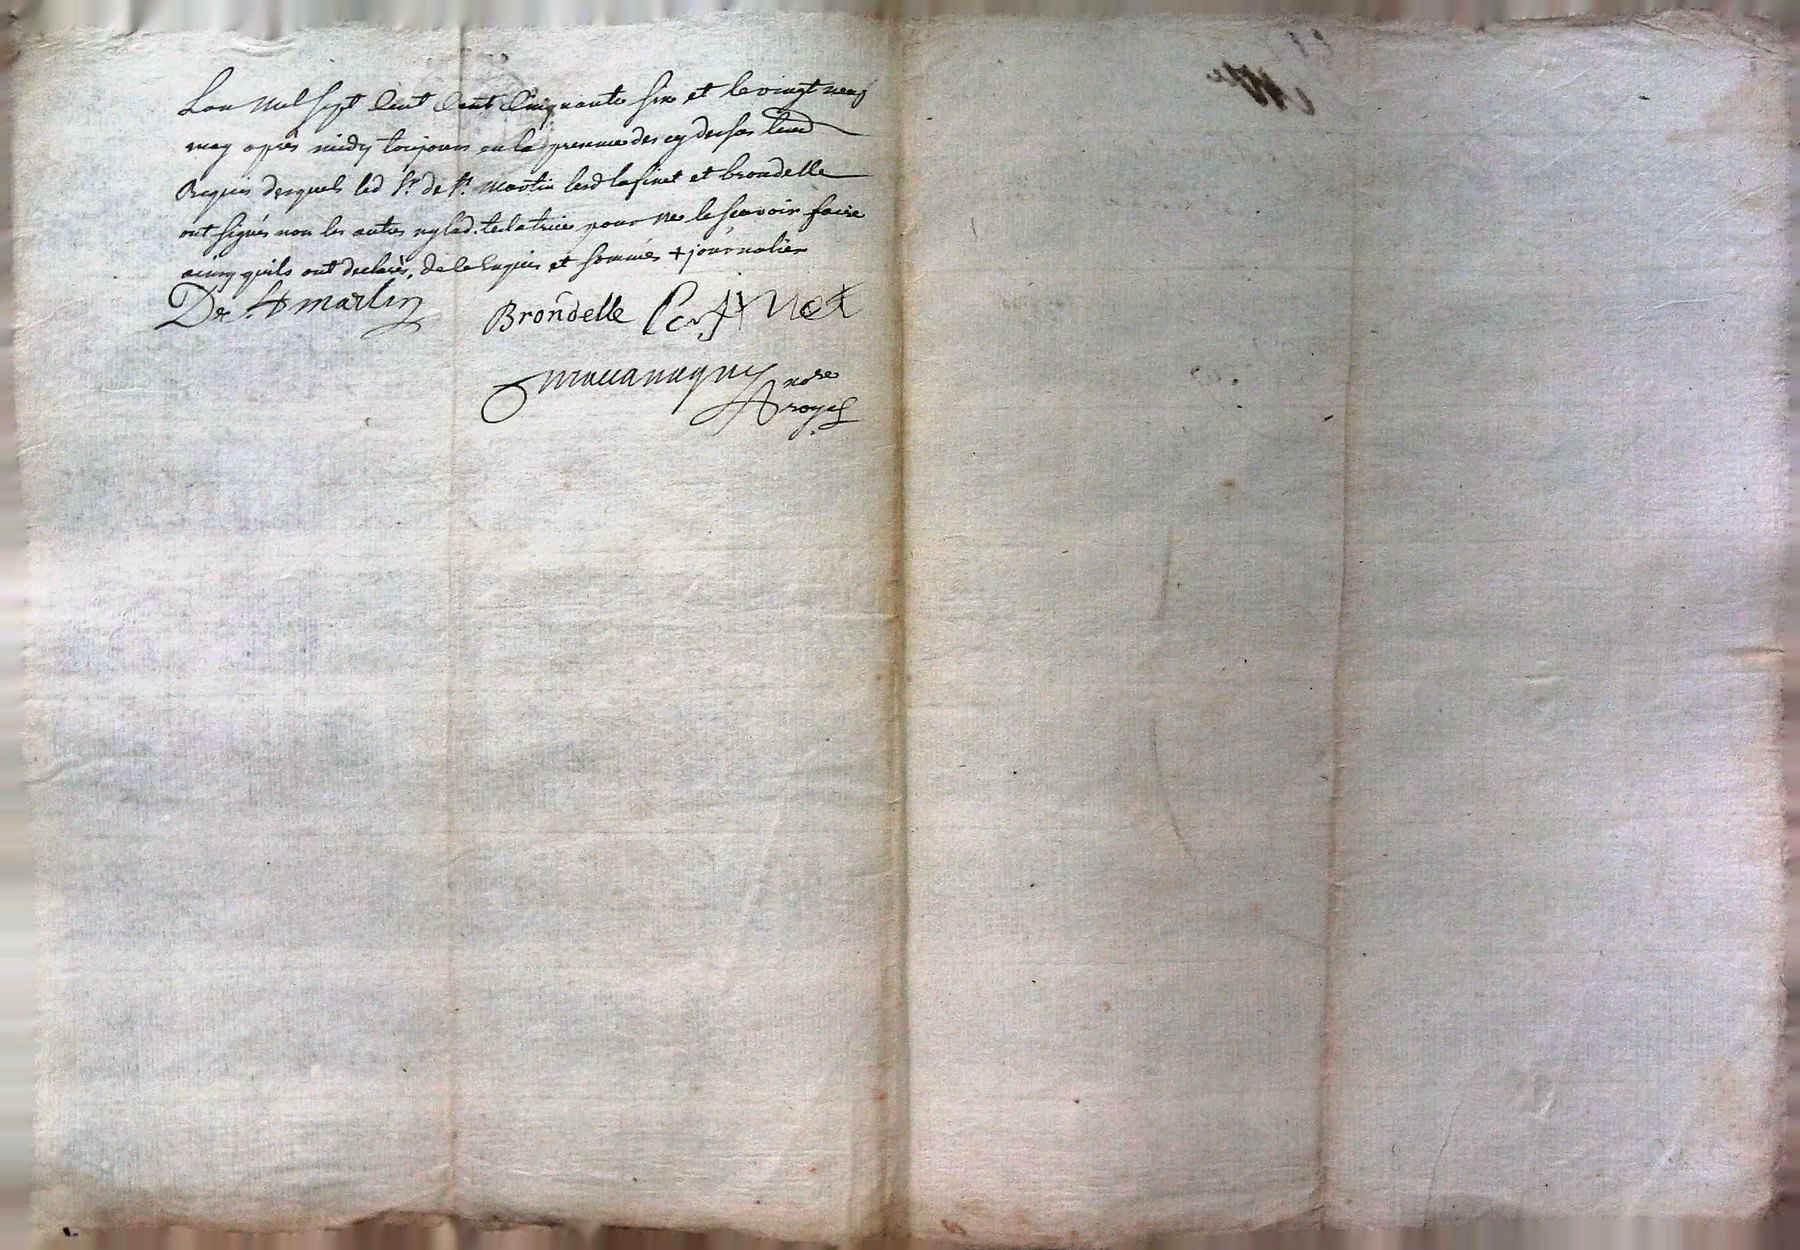 Lan Mil sept Cent Cent Cinquante six et le vingt neuf
may après midy toujours en la presence des cy dessus
Requis desquels led sr. de st. martin lesd lafinet et brondelle
ont signés non les autres ny lad. testatrice pour ne le scavoir faire
ainsy quils ont declarés, de le Requis et sommés + journalier
De St martin Brondelle
nore
royal